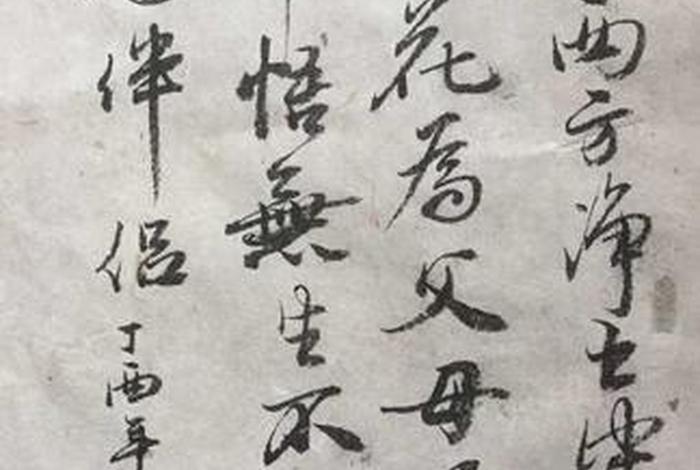 西方净土
花為父母
悟無生不
伴侶丁酉年